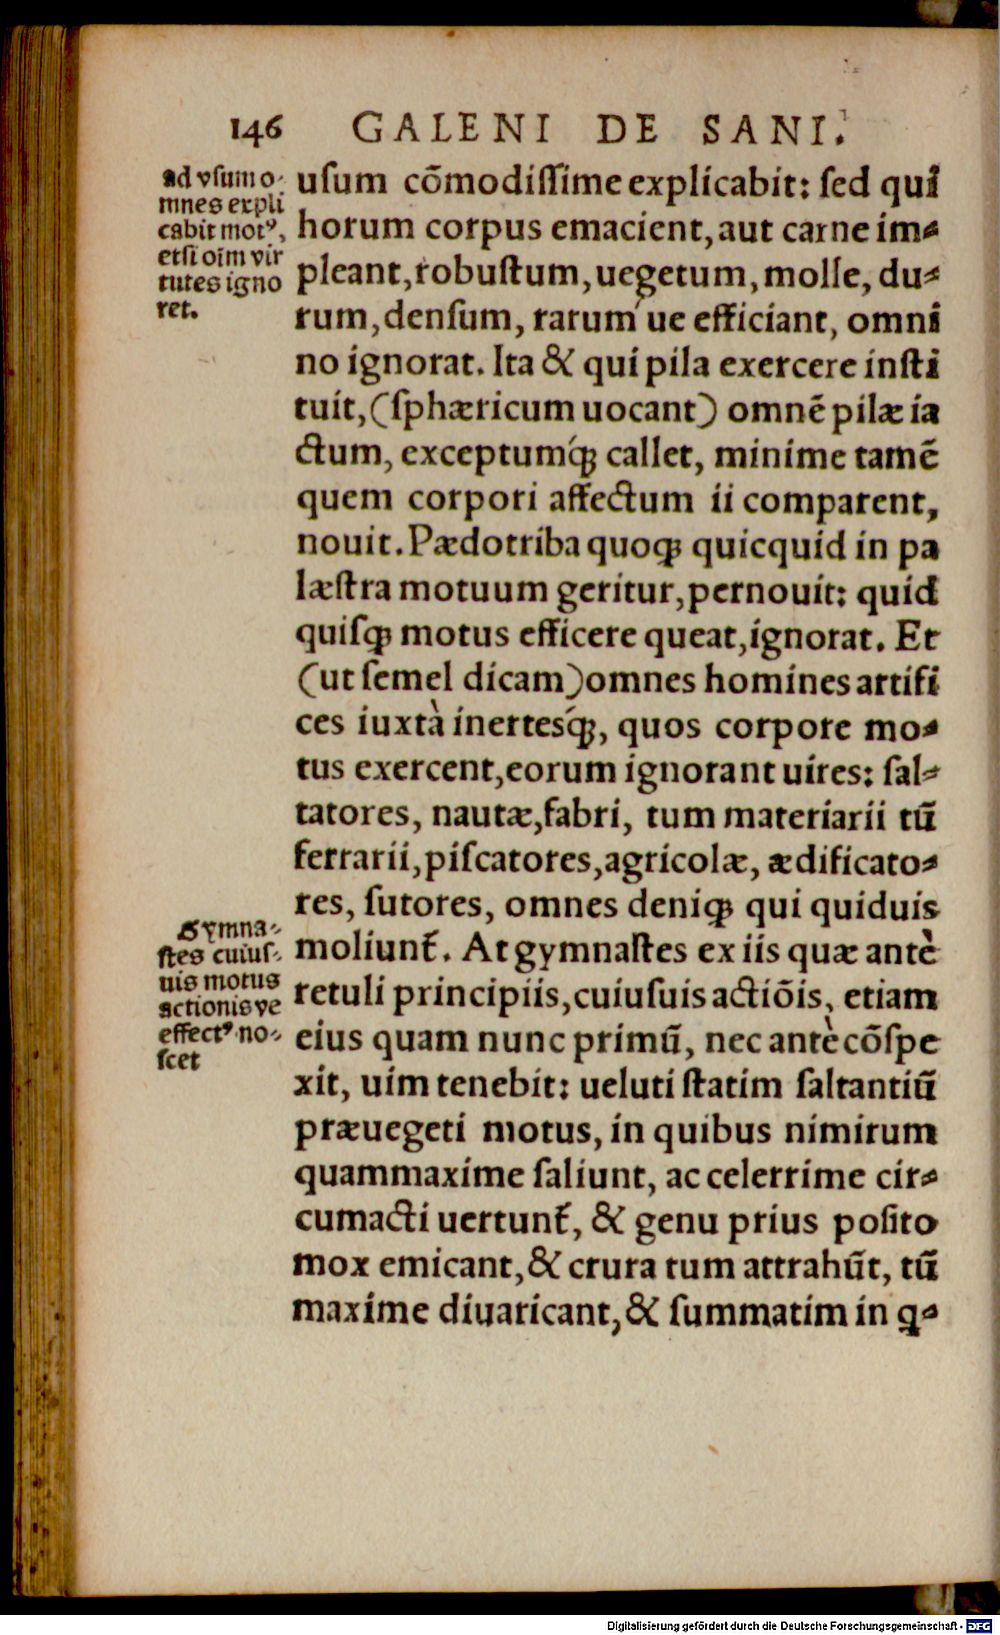 146 GALENI DE SANI.
ad vsum o-
mnes expli
cabit motꝰ,
etsi oīm vir
tutes igno
ret.
usum cōmodiſſime explicabit: sed qui
horum corpus emacient, aut carne im-
pleant, robuſtum, uegetum, molle, du-
rum, denſum, rarum ue efficiant, omni
no ignorat. Ita & qui pila exercere inſti
tuit, (ſphæricum uocant) omnē pilæ ia
ctum, exceptumq́; callet, minime tamē
quem corpori affectum ii comparent,
nouit. Pædotriba quoq; quicquid in pa
læſtra motuum geritur, pernouit: quid
quiſq; motus efficere queat, ignorat. Et
(ut ſemel dicam) omnes homines artifi
ces iuxtà inertesq́;, quos corpore mo-
tus exercent, eorum ignorant uires: ſal-
tatores, nautæ, fabri, tum materiarii tū
ferrarii, piſcatores, agricolæ, ædificato-
res, ſutores, omnes deniq; qui quiduis
Gymna-
ſtes cuiuſ-
uis motus
actionis ve
effectꝰ no-
ſcet
moliunt̃. At gymnaſtes ex iis quæ antè
retuli principiis, cuiuſuis actiōis, etiam
eius quam nunc primū, nec antè cōſpe
xit, uim tenebit: ueluti ſtatim ſaltantiū
præuegeti motus, in quibus nimirum
quammaxime ſaliunt, ac celerrime cir-
cumacti uertunt̃, & genu prius poſito
mox emicant, & crura tum attrahūt, tū
maxime diuaricant, & ſummatim in q-
Digitalisierung gefördert durch die Deutsche Forschungsgemeinschaft - DFG